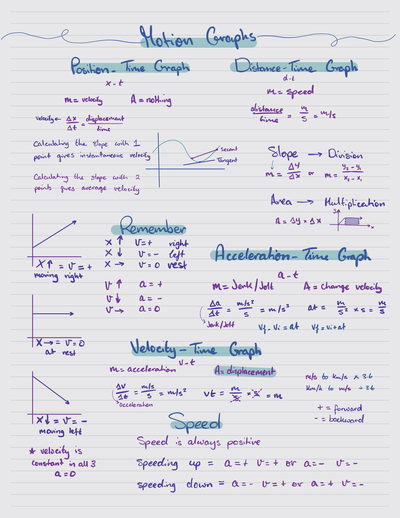 Motion Graphs
Position-Time Graph
x-t
m = velocity A = nothing
velocity = Δx/Δt = displacement/time
Calculating the slope with 1
point gives instantaneous velocity
Calculating the slope with 2
points gives average velocity
Secant
Tangent
Distance-Time Graph
d-t
m = speed
distance/time = m/s = m/s
Slope → Division
m = ΔY/ΔX or m = y₂-y₁/x₂-x₁
Area → Multiplication
A = Δy × Δx
x↑ = v = +
moving right
x→ = v = 0
at rest
x↓ = v = -
moving left
* velocity is
constant in all 3
a = 0
Remember
x ↑ v = + right
x ↓ v = - left
x → v = 0 rest
v ↑ a = +
v ↓ a = -
v → a = 0
Acceleration-Time Graph
a-t
m = Jerk/Jolt A = change velocity
Δa/Δt = m/s²/s = m/s³ at = m/s² × s = m/s
Jerk/Jolt
Vf - Vi = at Vf = Vi + at
Velocity-Time Graph
v-t
m = acceleration A = displacement
Δv/Δt = m/s/s = m/s² vt = m/s × s = m
acceleration
m/s to km/h × 3.6
km/h to m/s ÷ 3.6
+ = forward
- = backward
Speed
Speed is always positive
speeding up = a = + v = + or a = - v = -
speeding down = a = - v = + or a = + v = -